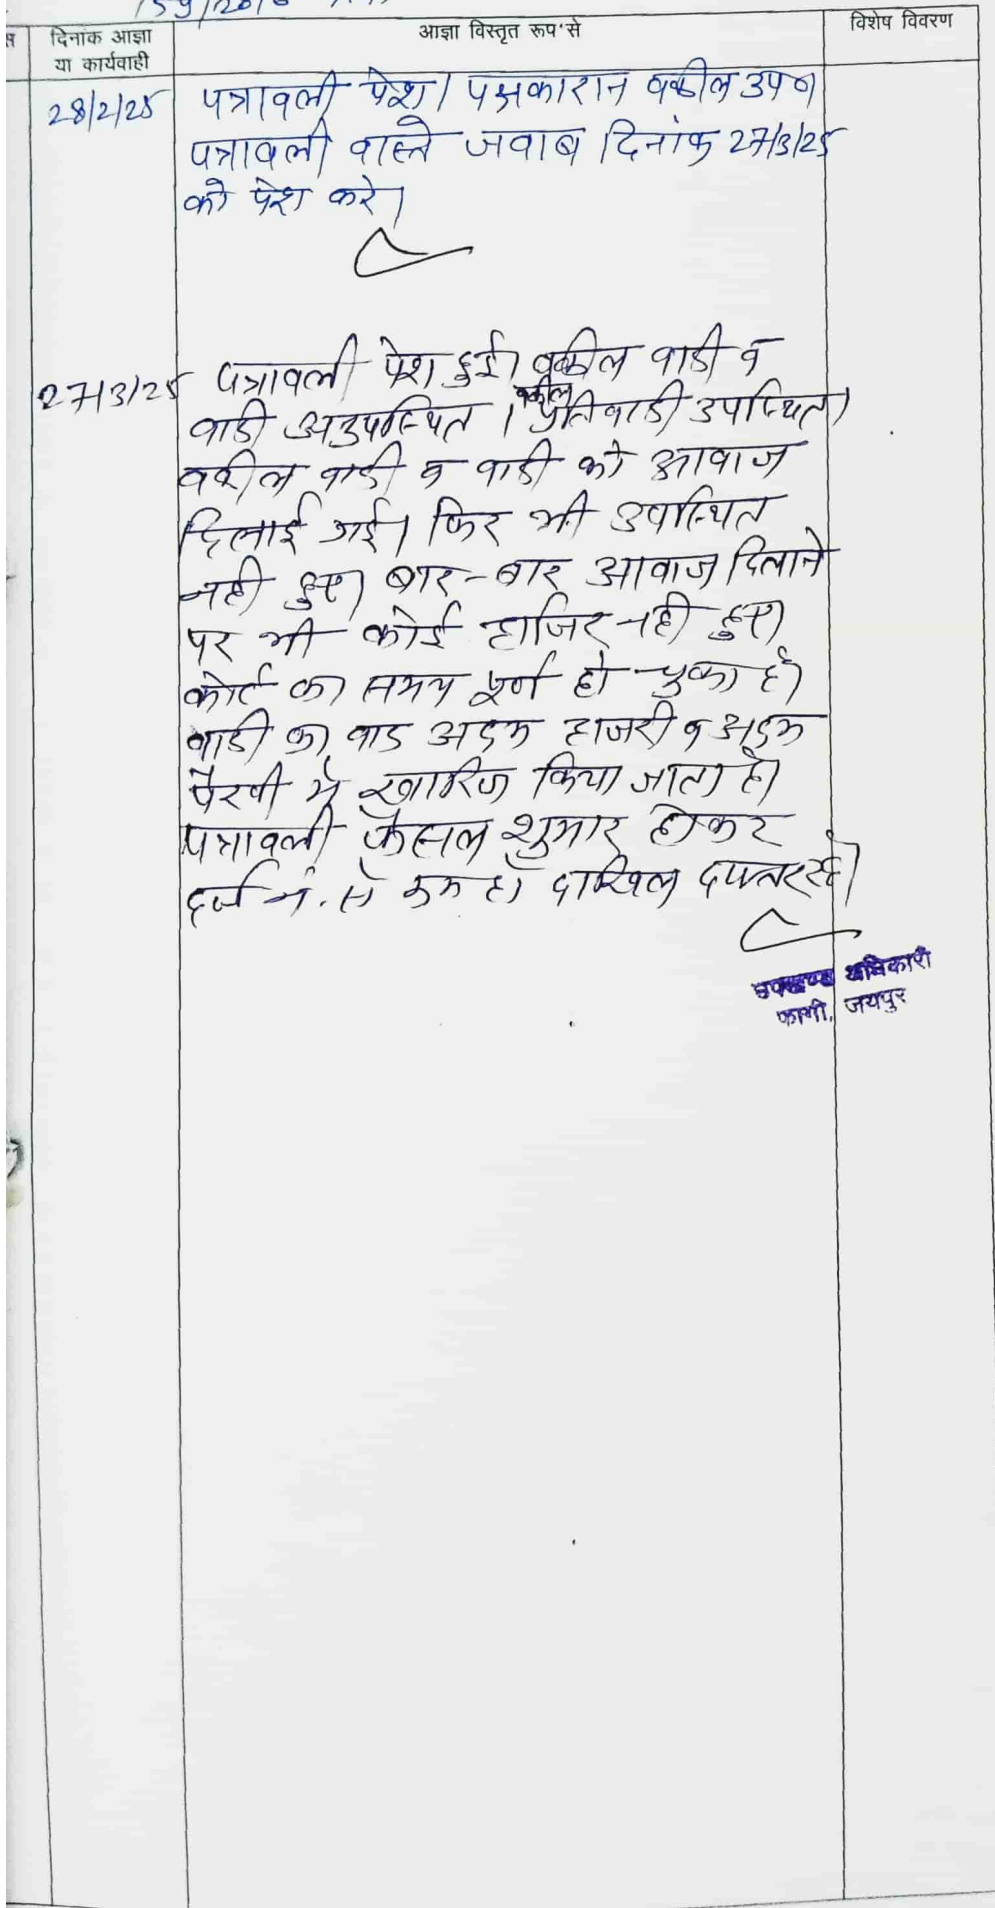 दिनांक आज्ञा
या कार्यवाही
आज्ञा विस्तृत रूप से
विशेष विवरण
28/2/25
पत्रावली पेश। पक्षकारान वकील उप०
पत्रावली वास्ते जवाब दिनांक 27/3/25
को पेश करे।
27/3/25
पत्रावली पेश हुई। वकील वादी व
वादी अनुपस्थित। वकील प्रतिवादी उपस्थित।
वकील वादी व वादी को आवाज
दिलाई गई। फिर भी उपस्थित
नही हुए। बार-बार आवाज दिलाने
पर भी कोई हाजिर नही हुए।
कोर्ट का समय पूर्ण हो चुका है।
वादी का वाद अदम हाजरी व अदम
पैरवी में खारिज किया जाता है।
पत्रावली फैसल शुमार होकर
दर्ज नं. से कम हो दाखिल दफ्तर रहे।
उपखण्ड अधिकारी
फागी, जयपुर